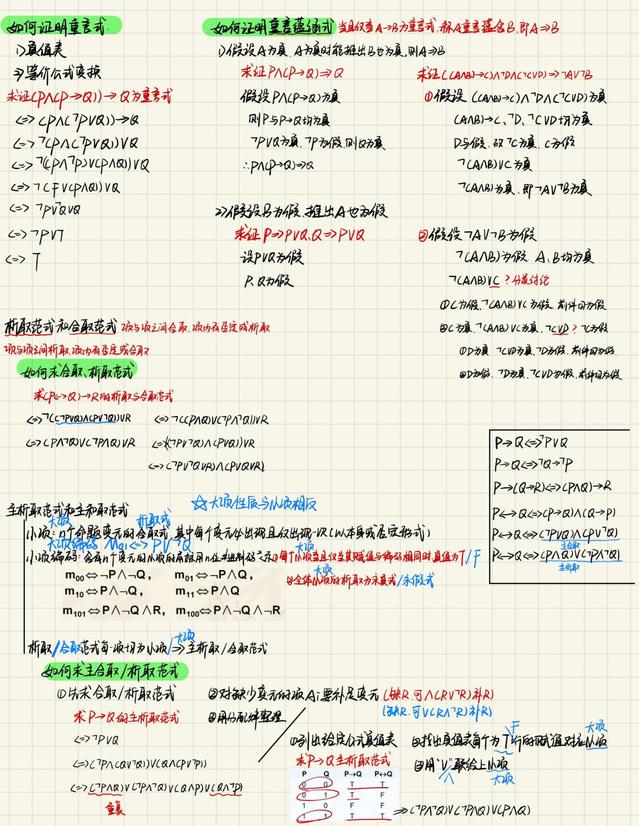 如何证明重言式.
1)真值表
2)等价公式变换
求证(P∧(P→Q))→Q为重言式
<=> (P∧(¬P∨Q))→Q
<=> ¬(P∧(¬P∨Q))∨Q
<=> ¬((P∧¬P)∨(P∧Q))∨Q
<=> ¬(F∨(P∧Q))∨Q
<=> ¬P∨¬Q∨Q
<=> ¬P∨T
<=> T
如何证明重言蕴涵式 当且仅当A→B为重言式,称A重言蕴含B,即A⇒B
1)假设A为真,A为真时能推出B也为真,则A⇒B
求证P∧(P→Q)⇒Q
假设P∧(P→Q)为真
则P与P→Q均为真
¬P∨Q为真,¬P为假,则Q为真
∴P∧(P→Q)⇒Q
2)假设B为假,推出A也为假
求证P⇒P∨Q,Q⇒P∨Q
设P∨Q为假
P,Q为假
求证((A∧B)→C)∧¬D∧(¬C∨D)⇒¬A∨¬B
①假设((A∧B)→C)∧¬D∧(¬C∨D)为真
(A∧B)→C,¬D,¬C∨D均为真
D为假,故¬C为真,C为假
¬(A∧B)∨C为真
¬(A∧B)为真,即¬A∨¬B为真
②假设¬A∨¬B为假
¬(A∧B)为假 A,B均为真
¬(A∧B)∨C ?分类讨论
①C为假,¬(A∧B)∨C为假,前件为假
②C为真,¬(A∧B)∨C为真,¬C∨D?¬C为假
①D为真 ¬C∨D为真,¬D为假,前件为假
②D为假,¬D为真,¬C∨D为假,前件为假
析取范式和合取范式 项与项之间合取,项内有否定或析取
项与项之间析取,项内有否定或合取
如何求合取、析取范式
求(P<->Q)→R的析取与合取范式
<=>¬((¬P∨Q)∧(P∨¬Q))∨R
<=>(P∧¬Q)∨(¬P∧Q)∨R
<=>¬((P∧Q)∨(¬P∧¬Q))∨R
<=>((¬P∨¬Q)∧(P∨Q))∨R
<=>(¬P∨¬Q∨R)∧(P∨Q∨R)
P→Q<=>¬P∨Q
P→Q<=>¬Q→¬P
P→(Q→R)<=>(P∧Q)→R
P<->Q<=>(P→Q)∧(Q→P)
P<->Q<=>(¬P∨Q)∧(P∨¬Q)
主合取
P<->Q<=>(P∧Q)∨(¬P∧¬Q)
主析取
主析取范式和主和取范式 ☆大项性质与小项相反
大项 析取式
小项:n个命题变元的合取式,其中每个变元必出现且仅出现一次(以本身或否定形式)
大项编码 M01<=>P∨¬Q
小项编码:
大项
①每个小项当且仅当其赋值与编码相同时,真值为T/F
大项
②全体小项的析取为永真式/永假式
m00⇔¬P∧¬Q, m01⇔¬P∧Q,
m10⇔P∧¬Q, m11⇔P∧Q
m101⇔P∧¬Q∧R, m100⇔P∧¬Q∧¬R
析取/合取范式每一项均为小项/大项=>主析取/合取范式
如何求主合取/析取范式
①先求合取/析取范式
求P→Q的主析取范式
<=>¬P∨Q
<=>(¬P∧(Q∨¬Q))∨(Q∧(P∨¬P))
<=>(¬P∧Q)∨(¬P∧¬Q)∨(Q∧P)∨(Q∧¬P)
重复
②对缺少变元的项Ai要补足变元 (缺R,可∧(R∨¬R)补R)
(缺R,可∨(R∧¬R)补R)
③用分配律整理
①列出给定公式真值表
求P→Q主析取范式
P Q P→Q P↔Q
0 0 T T
0 1 T F
1 0 F F
1 1 T T
②找出真值表每个为T行的赋值对应小项
F 大项
③用"∨"联给上小项
∧ 大项
=>(¬P∧¬Q)∨(¬P∧Q)∨(P∧Q)